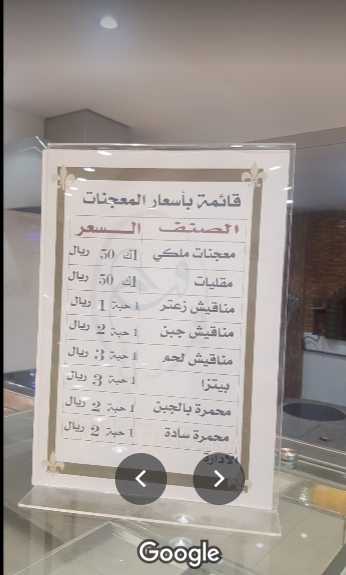 قائمة بأسعار المعجنات
الصنف السعر
معجنات ملكي 1ك 50 ريال
مقليات 1ك 50 ريال
مناقيش زعتر 1 حبة 1 ريال
مناقيش جبن 1 حبة 2 ريال
مناقيش لحم 1 حبة 3 ريال
بيتزا 1 حبة 3 ريال
محمرة بالجبن 1 حبة 2 ريال
محمرة سادة 1 حبة 2 ريال
الإدارة
Google